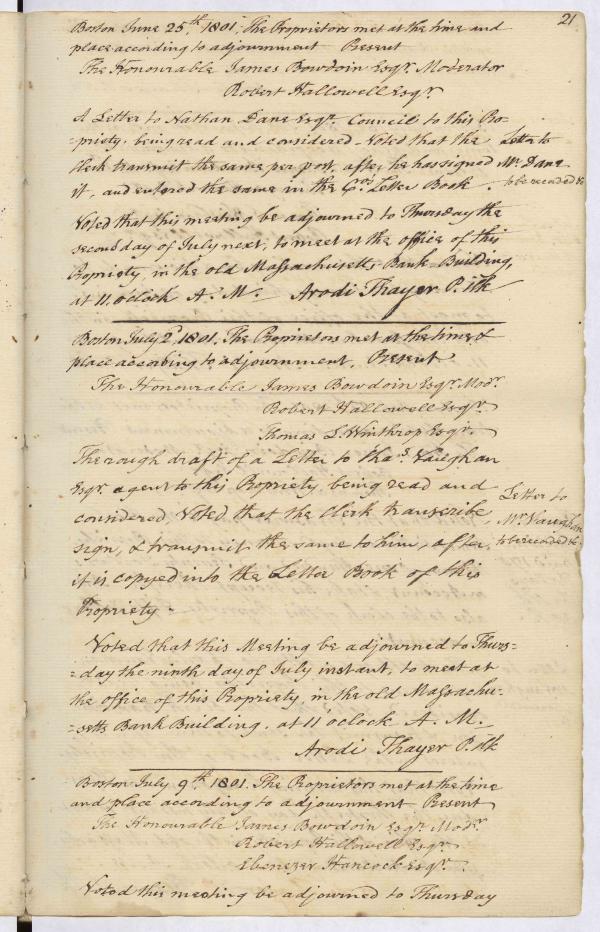 21
Boston June 25th, 1801, The Proprietors met at the time and
place according to adjournment Present
The Honourable James Bowdoin Esqr. Moderator
Robert Hallowell Esqr
A Letter to Nathan Dane Esqr. Council to this Pro-
=priety, being read and considered - Voted that the
Clerk transmit the same per post, after he has signed
it, and entered the same in the Cos. Letter Book.
Letter to
Mr. Dane
to be recorded &
Voted that this meeting be adjourned to Thursday the
second day of July next, to meet at the office of this
Propriety, in the old Massachusetts Bank Building,
at 11 oClock A. M. Arodi Thayer P. Clk
Boston July 2d, 1801. The Proprietors met at the time &
place according to adjournment, Present
The Honourable James Bowdoin Esqr. Modr.
Robert Hallowell Esqr.
Thomas L. Winthrop Esqr.
The rough draft of a Letter to Chas. Vaughan
Esqr. agent to this Propriety, being read and
considered, Voted, that the Clerk transcribe,
sign, & transmit the same to him, after
it is copyed into the Letter Book of this
Propriety -
Letter to
Mr. Vaughan
to be recorded &
Voted that this Meeting be adjourned to Thurs=
=day the ninth day of July instant, to meet at
the office of this Propriety, in the old Massachu=
=setts Bank Building, at 11 oclock A. M.
Arodi Thayer P. Clk
Boston July 9th, 1801. The Proprietors met at the time
and place according to adjournment Present
The Honourable James Bowdoin Esqr Modr.
Robert Hallowell Esqr
Ebenezer Hancock Esqr.
Voted this meeting be adjourned to Thursday